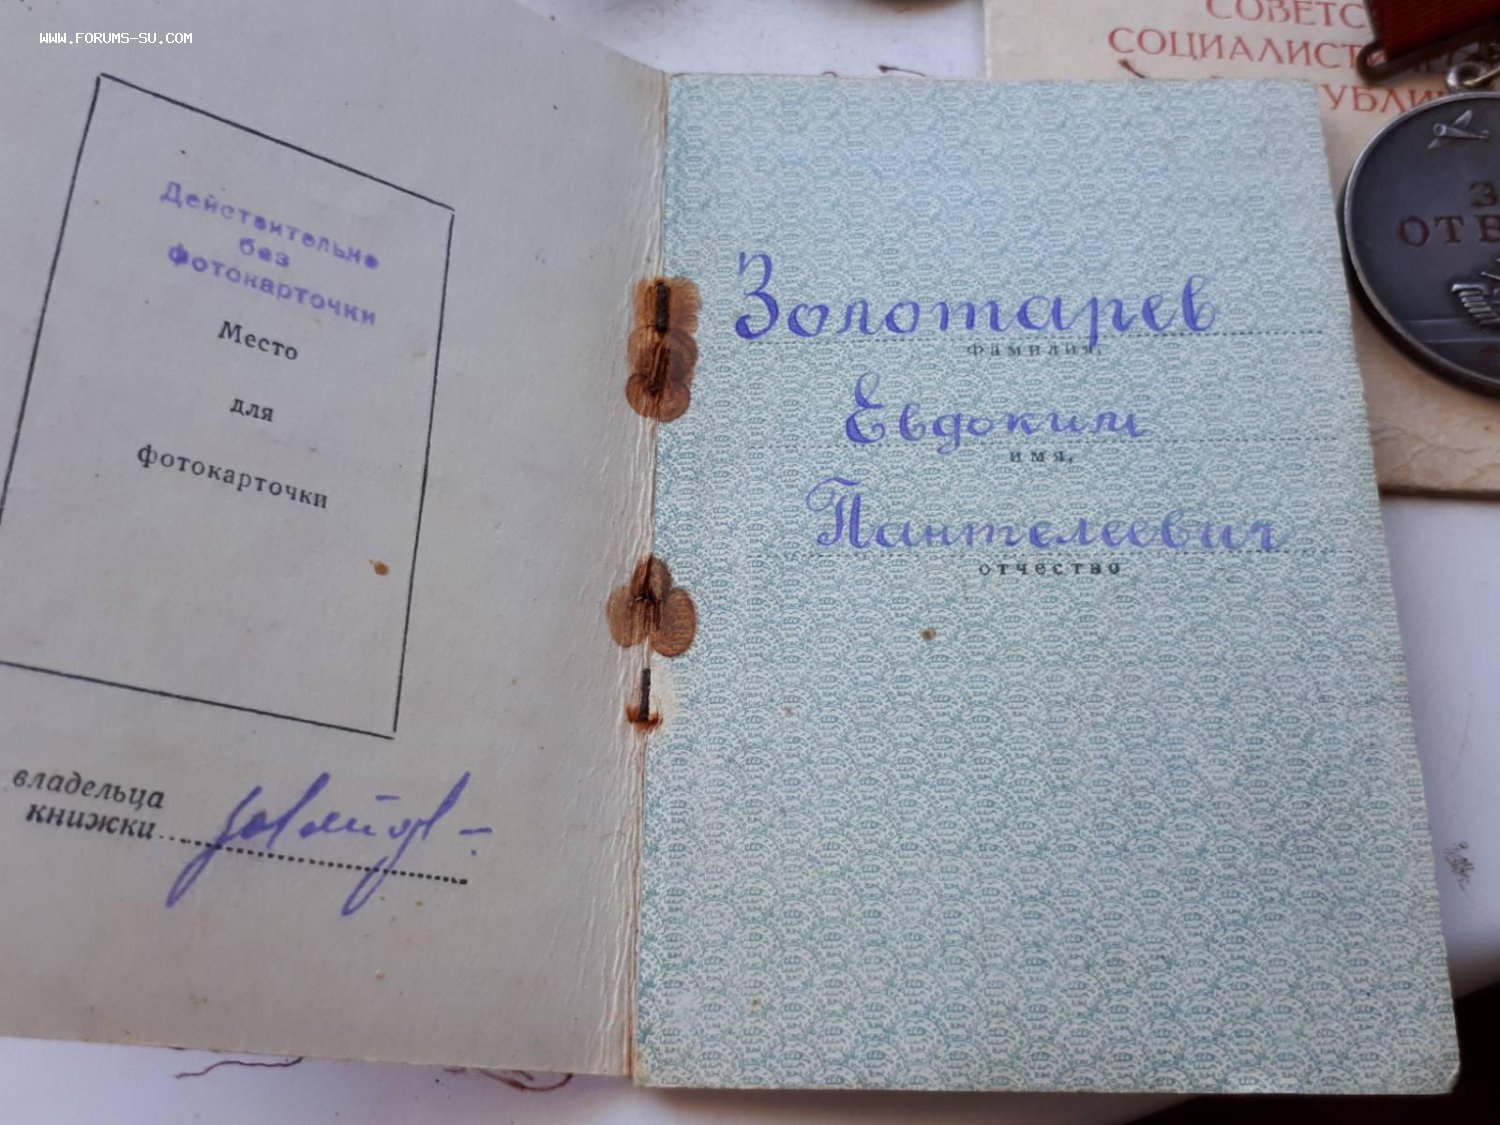 WWW.FORUMS-SU.COM
СОВЕТС
СОЦИАЛИСТИ
УБЛИ
З
ОТВ
Действительно
без
фотокарточки
Место
для
фотокарточки
владельца
книжки
Золотарев
фамилия,
Евдоким
имя,
Пантелеевич
отчество